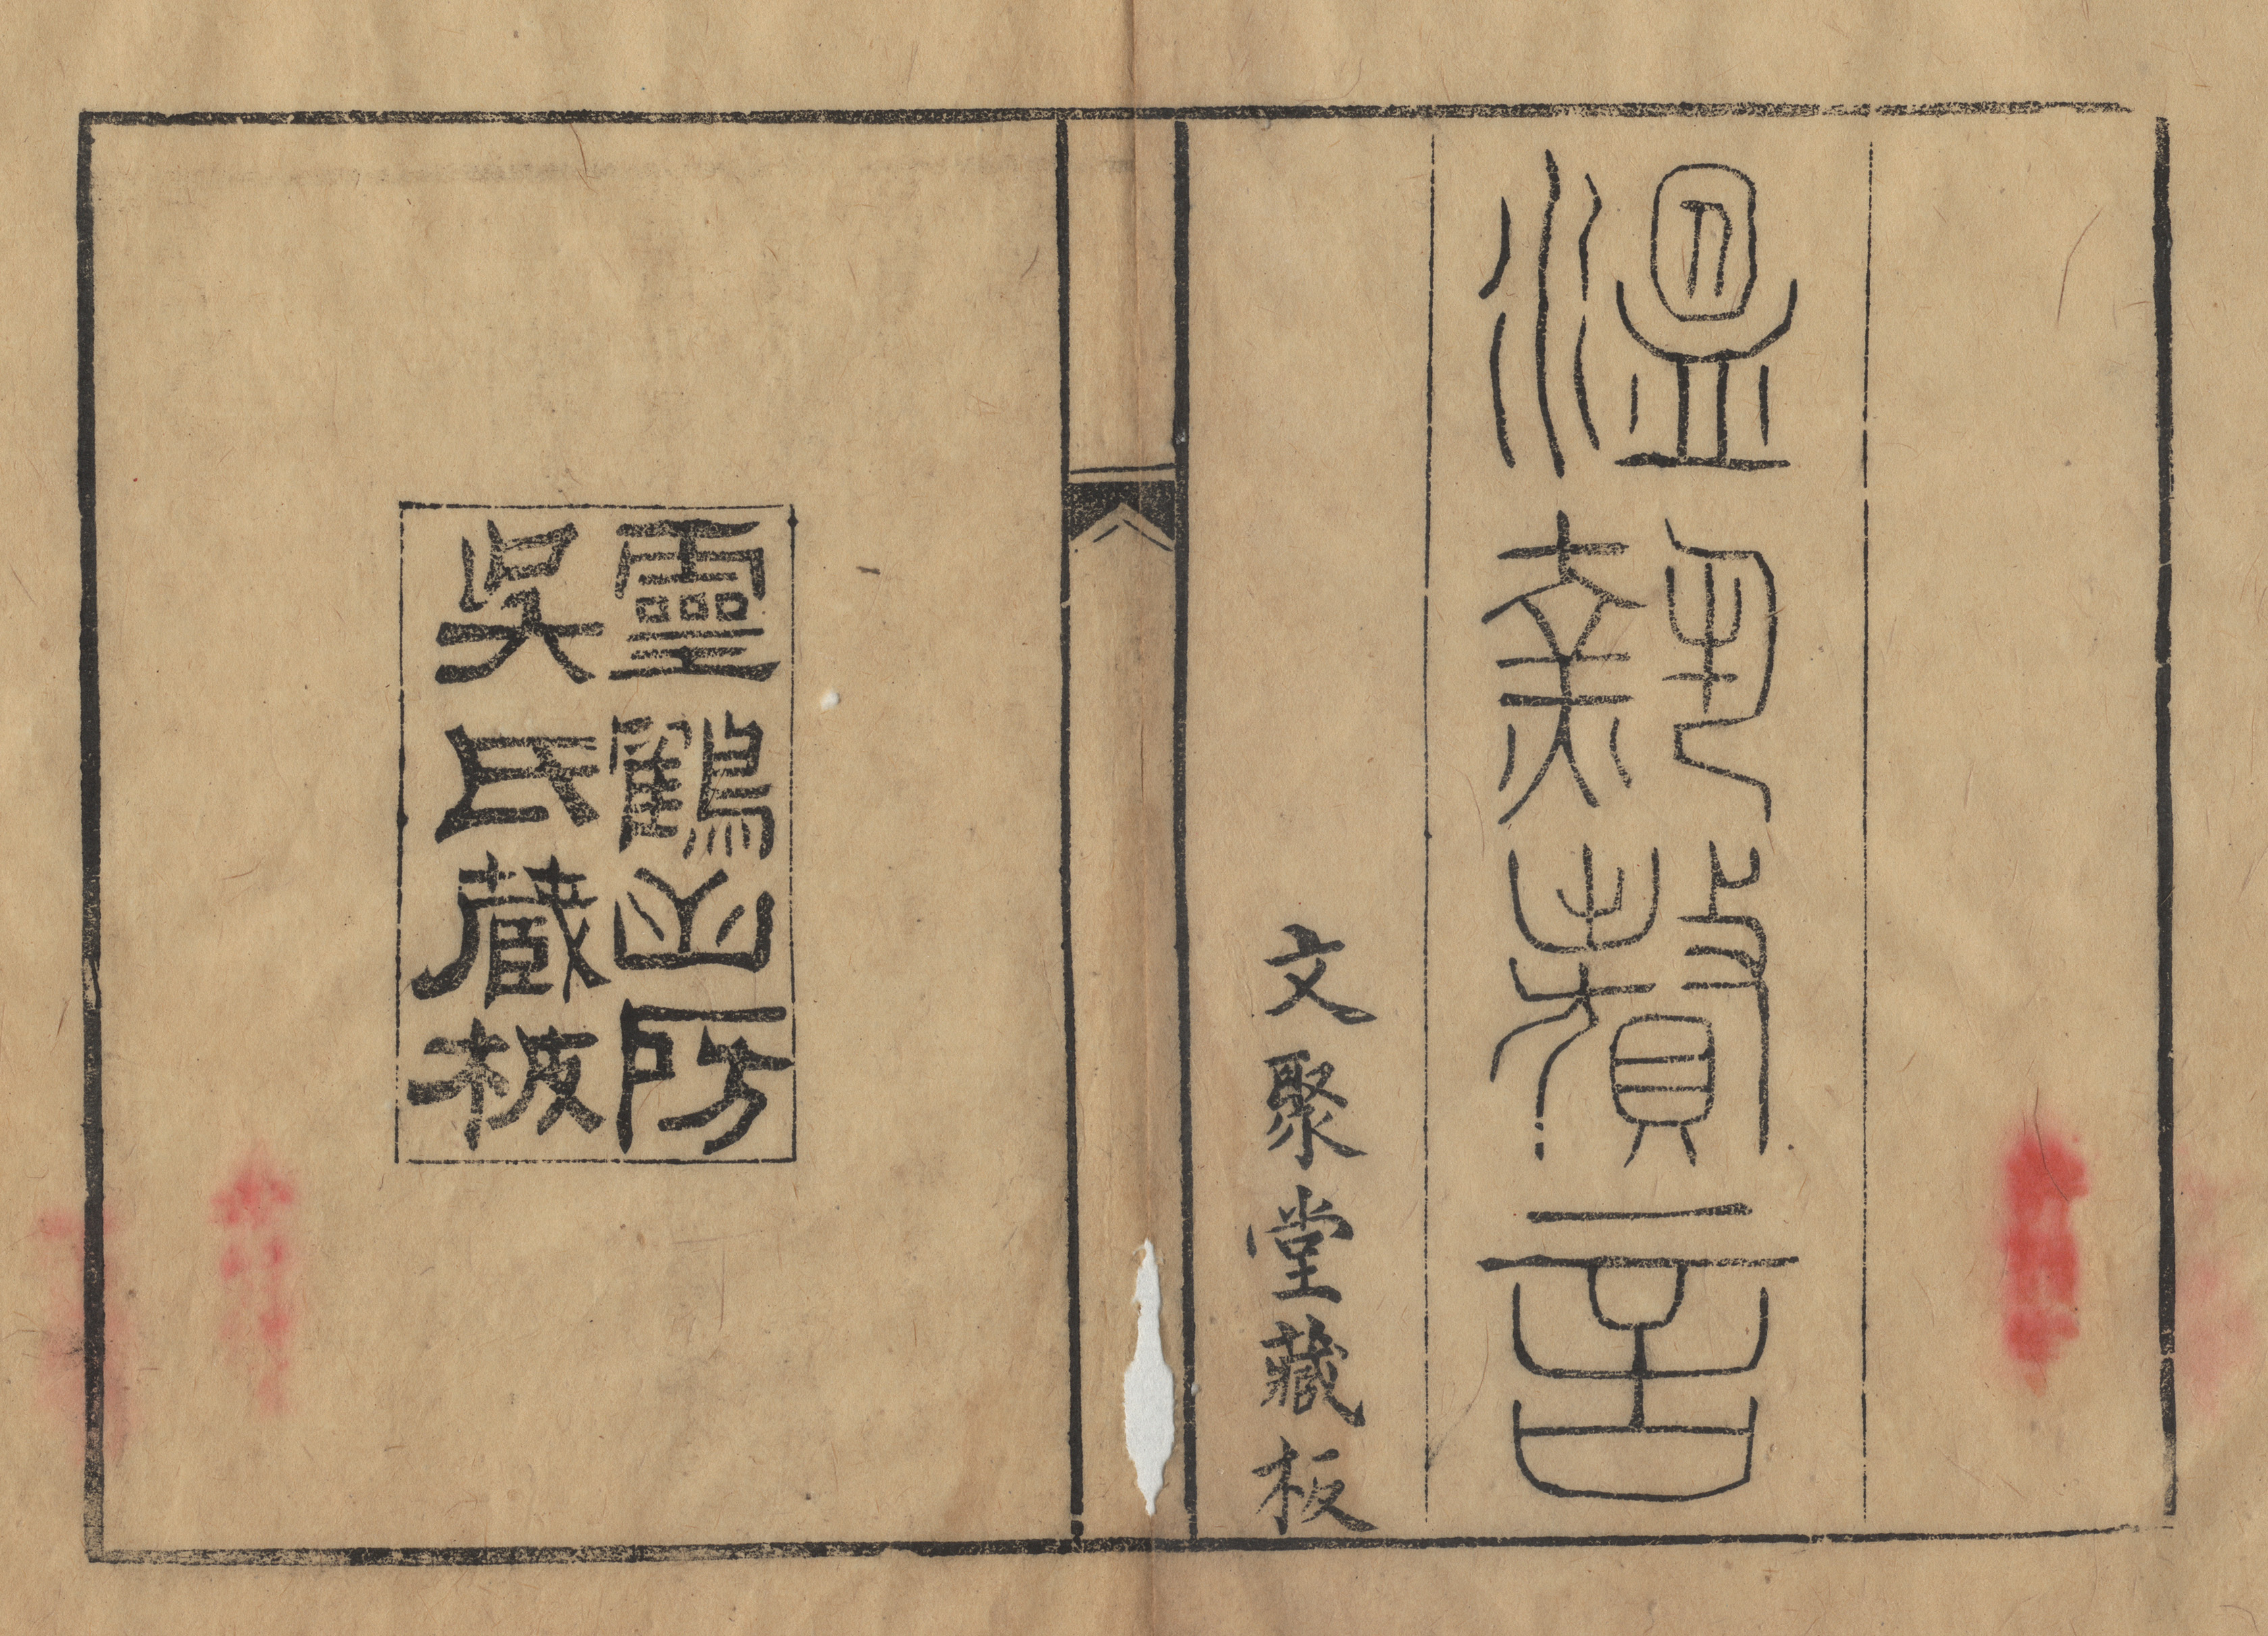 溫熱贅言
文聚堂藏板
靈鶴山房
吳氏藏板